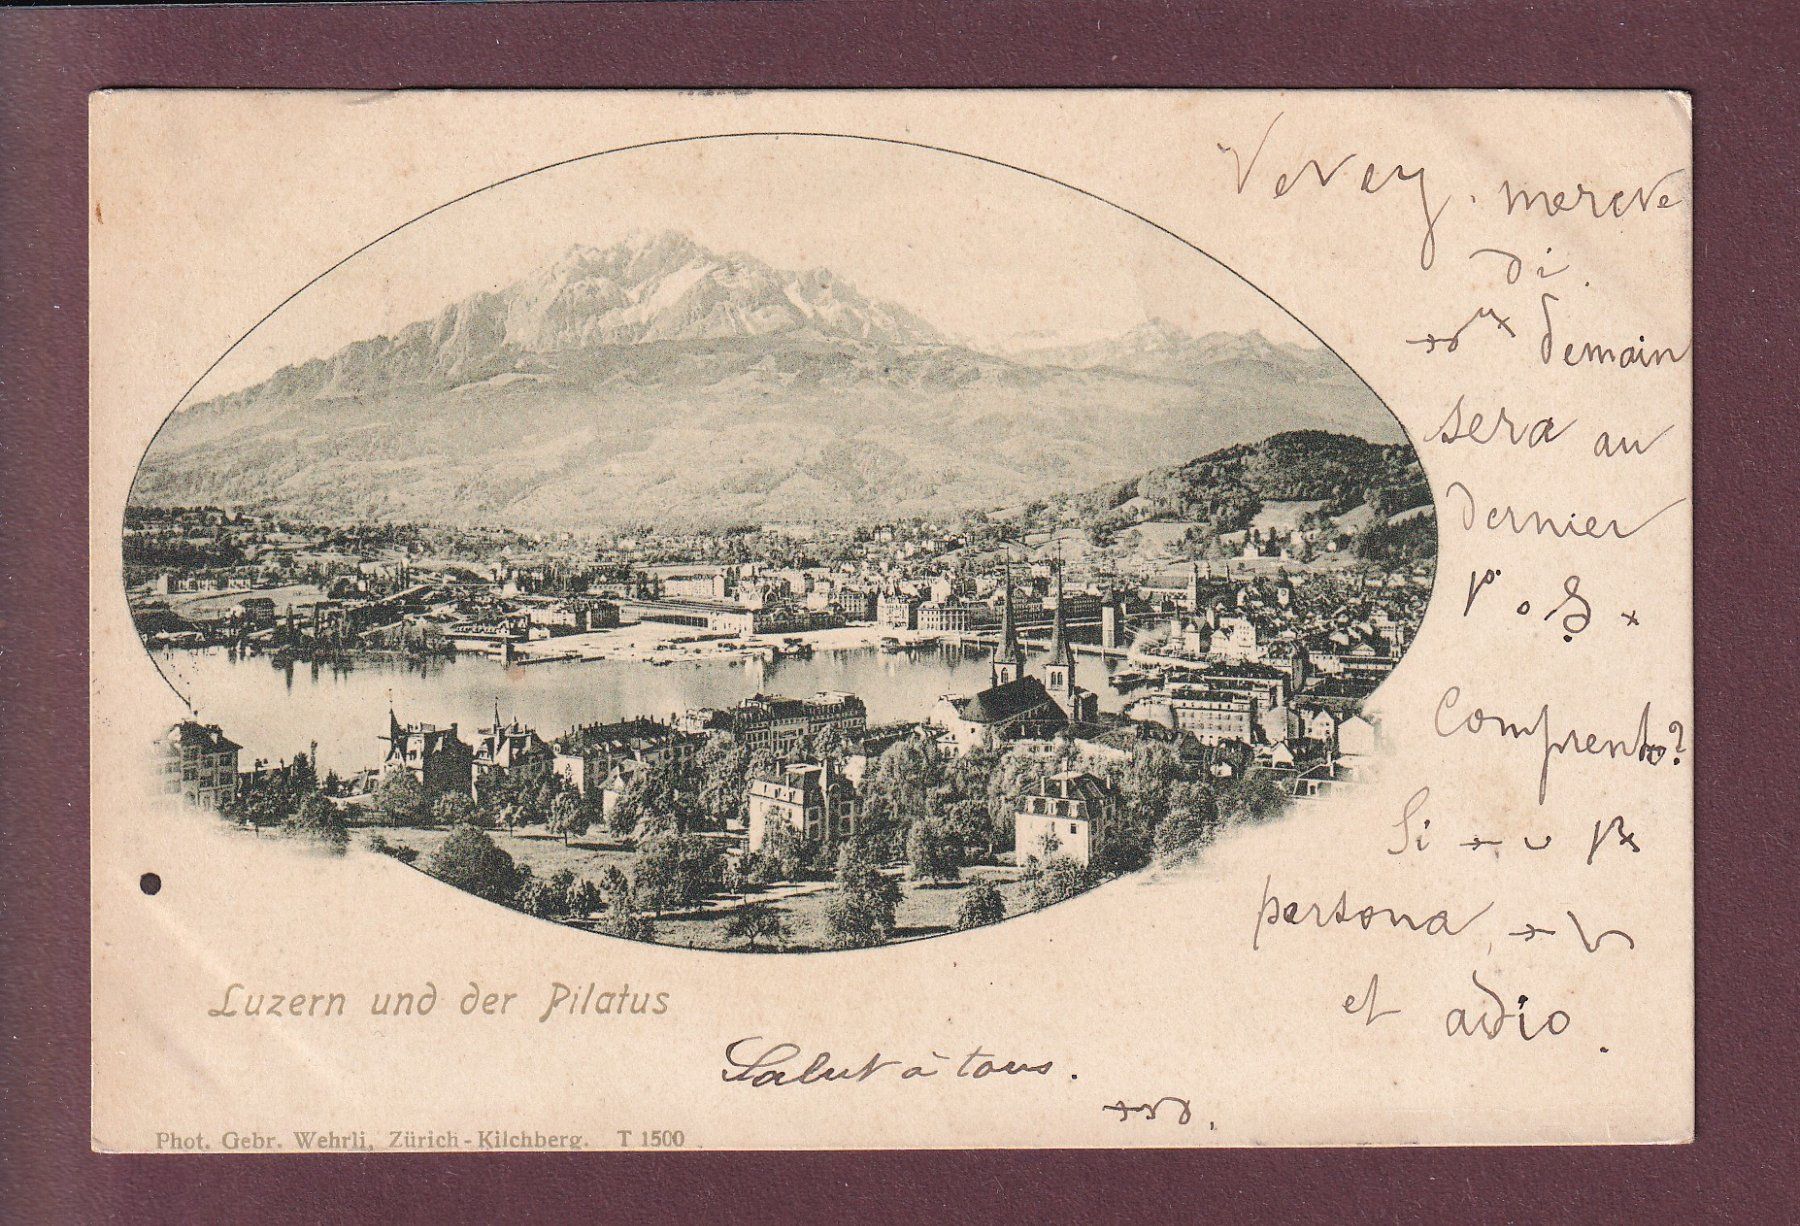 Vevey. mercre
di.
demain
sera au
dernier
Comprento?
Si
persona
et adio.
Luzern und der Pilatus
Salut à tous.
Phot. Gebr. Wehrli, Zürich-Kilchberg. T 1500